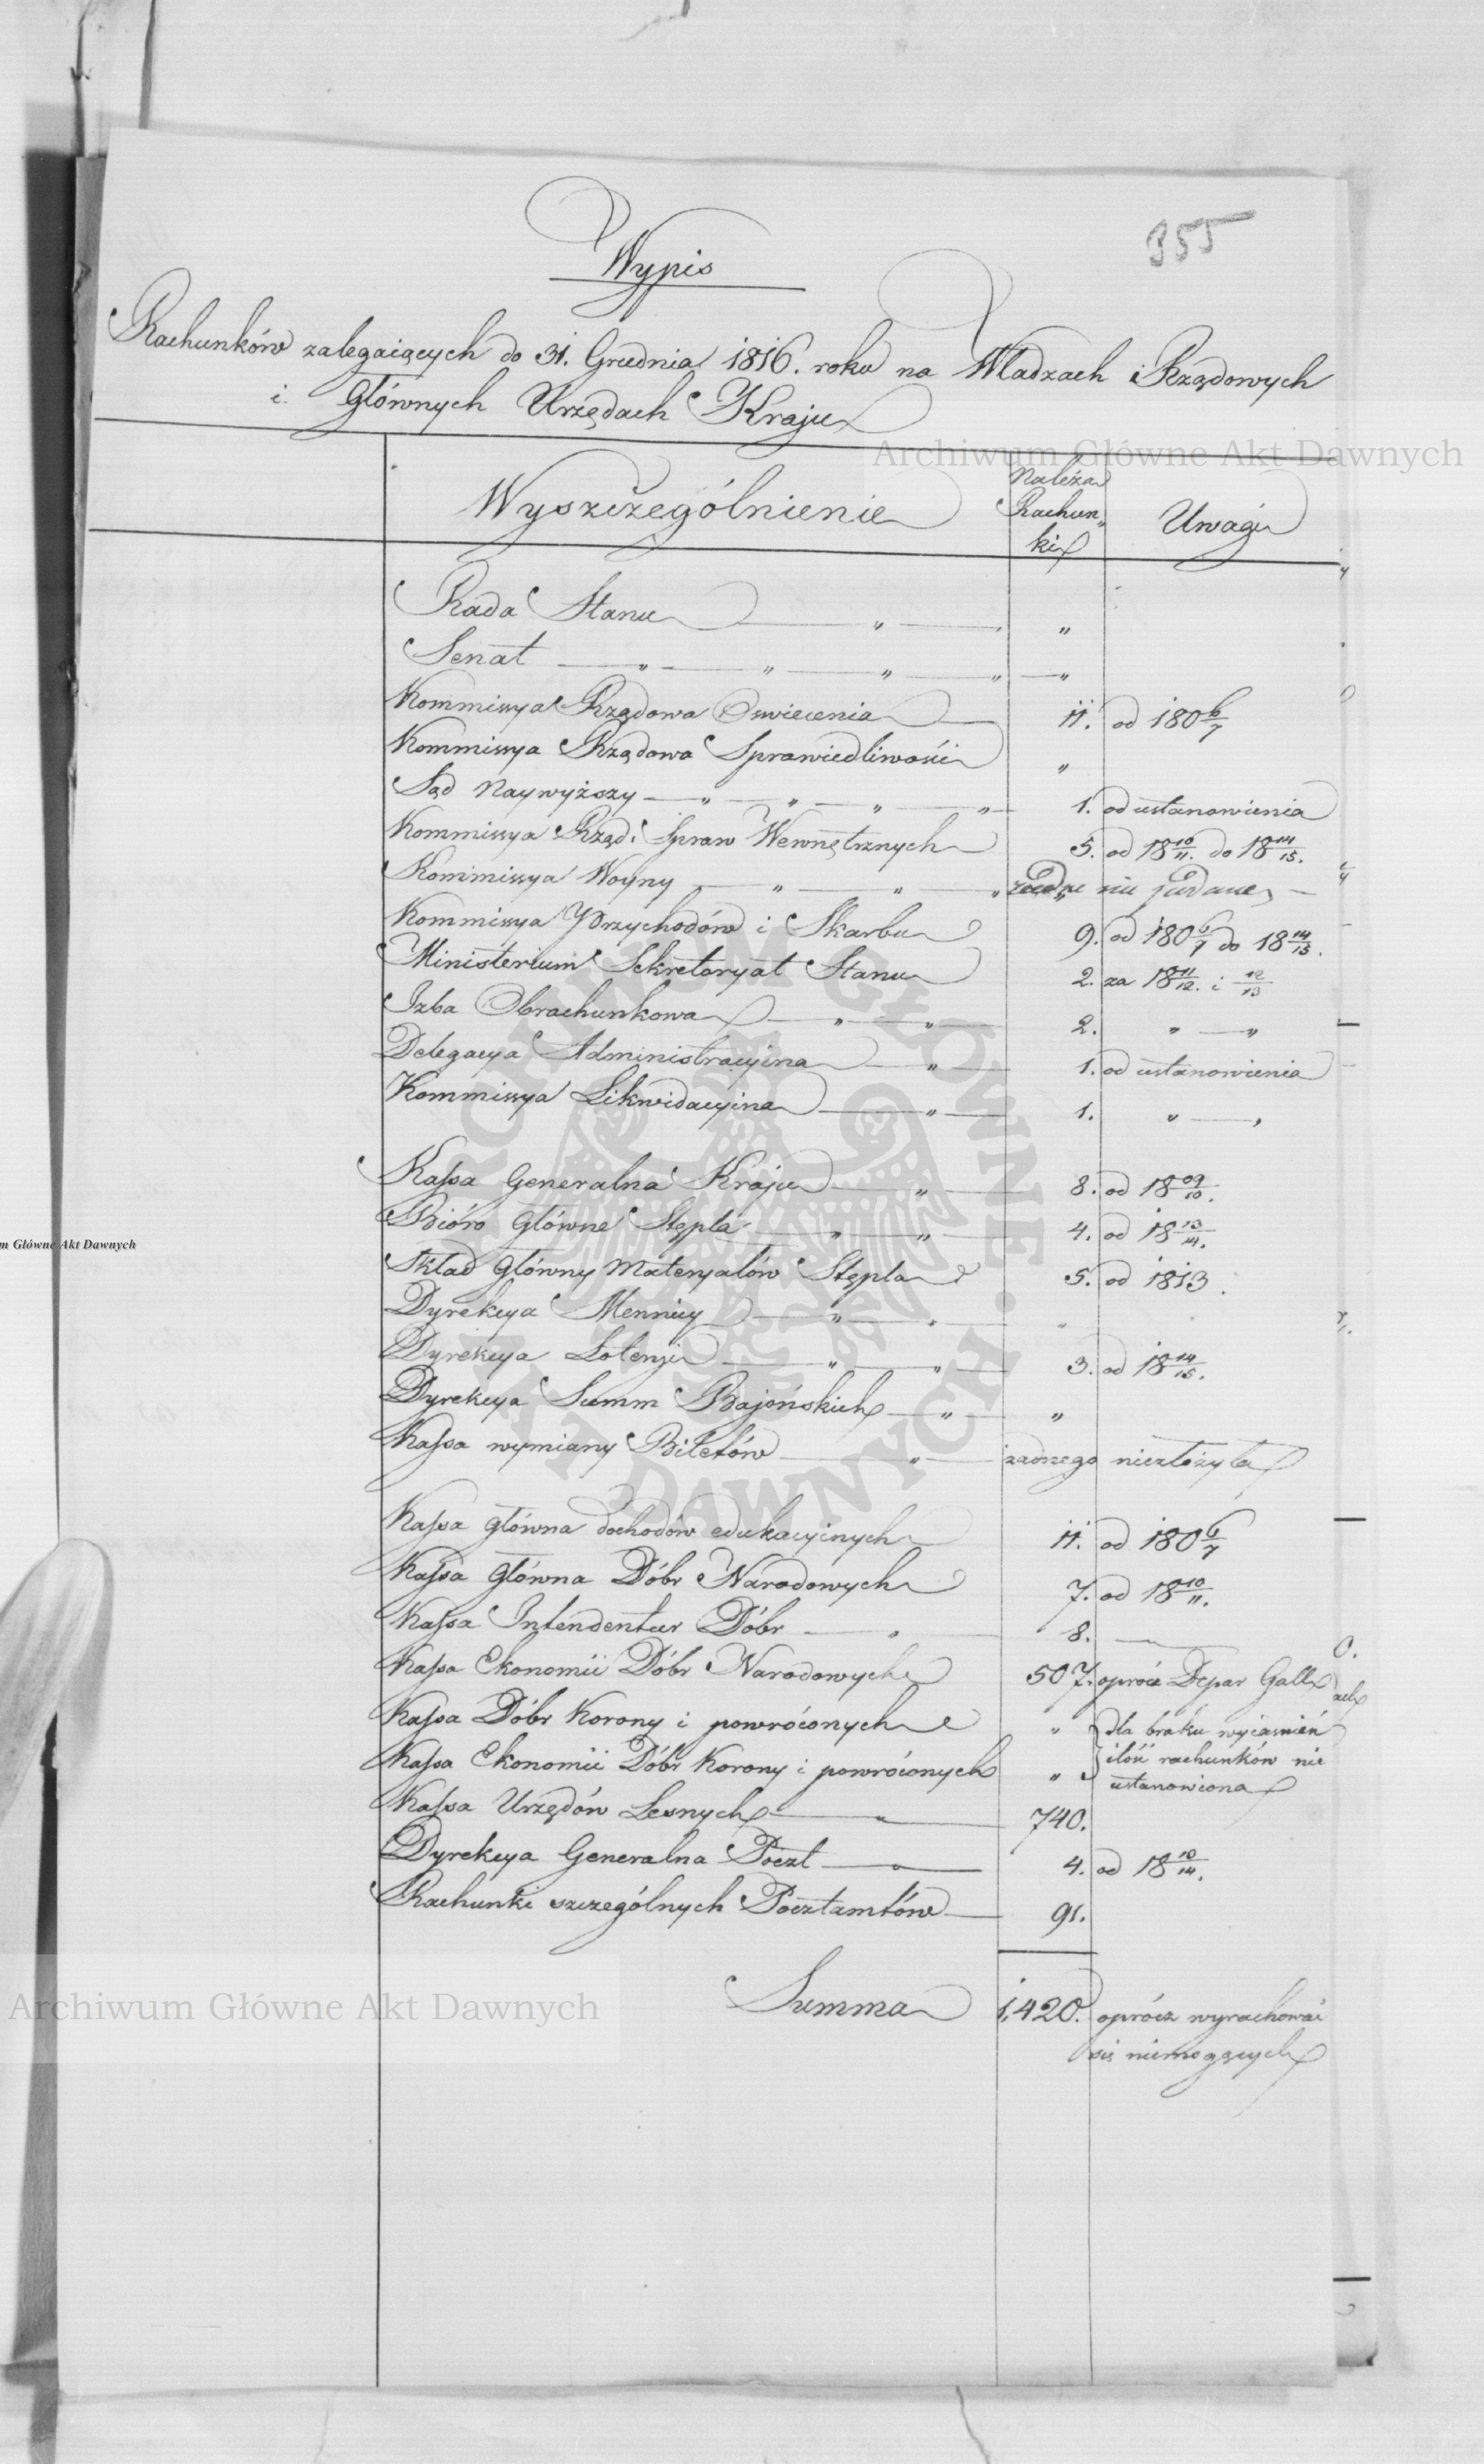 355
Wypis
Rachunków zalegaiących do 31. Grudnia 1816. roku na Władzach Rządowych
i Głównych Urzędach Kraju
Archiwum Główne Akt Dawnych
Wyszczególnienie Należą Rachun„ki Uwagi
Rada Stanu „ „
Senat „ „ „ „ „
Kommissya Rządowa Oswiecenia 11. od 180 6/7
Kommissya Rządowa Sprawiedliwości „
Sąd Naywyższy „ „ „ „ 1. od ustanowienia
Kommissya Rząd: Spraw Wewnętrznych 5. od 18 10/11. do 18 14/15.
Kommissya Woyny „ „ „ nie podane
Kommissya Przychodów i Skarbu 9. od 180 6/7 do 18 14/15.
Ministerium Sekretaryat Stanu 2. za 18 11/12. i 12/13
Izba Obrachunkowa „ „ 2. „ „
Delegacya Administracyjna „ 1. od ustanowienia
Kommissya Likwidacyjna „ 1. „ „
Kassa Generalna Kraju „ 8. od 18 09/10.
Bióro Główne Stępla „ „ 4. od 18 13/14.
m Główne Akt Dawnych
Skład Główny Materyałów Stępla 5. od 1813.
Dyrekcya Mennicy „ „ „
Dyrekcya Loteryi „ „ 3. od 18 14/15.
Dyrekcya Summ Bajońskich „ „
Kassa wymiany Biletów „ żadnego niezłożyła
Kassa główna dochodów edukacyinych 11. od 180 6/7
Kassa Główna Dóbr Narodowych 7. od 18 10/11.
Kassa Intendentur Dóbr „ 8.
Kassa Ekonomii Dóbr Narodowych 507. oprócz Depar Gall
Kassa Dóbr Korony i powróconych „ dla braku wyiasnień
Kassa Ekonomii Dóbr Korony i powróconych „ ilość rachunków nie
ustanowiona
Kassa Urzędów Lesnych „ 740.
Dyrekcya Generalna Poczt „ 4. od 18 10/14.
Rachunki szczególnych Pocztamtów 91.
Summa 1,420. oprócz wyrachować
się niemogących
Archiwum Główne Akt Dawnych
ARCHIWUM GŁÓWNE AKT DAWNYCH